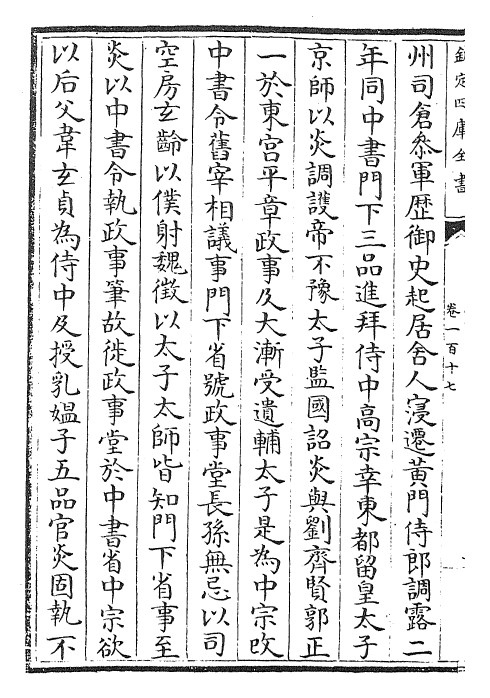 欽定四庫全書
卷一百十七
州司倉叅軍歴御史起居舍人寖遷黄門侍郎調露二
年同中書門下三品進拜侍中高宗幸東都留皇太子
京師以炎調護帝不豫太子監國詔炎與劉齊賢郭正
一於東宫平章政事及大漸受遺輔太子是為中宗改
中書令舊宰相議事門下省號政事堂長孫無忌以司
空房玄齡以僕射魏徴以太子太師皆知門下省事至
炎以中書令執政事筆故徙政事堂於中書省中宗欲
以后父韋玄貞為侍中及授乳媪子五品官炎固執不